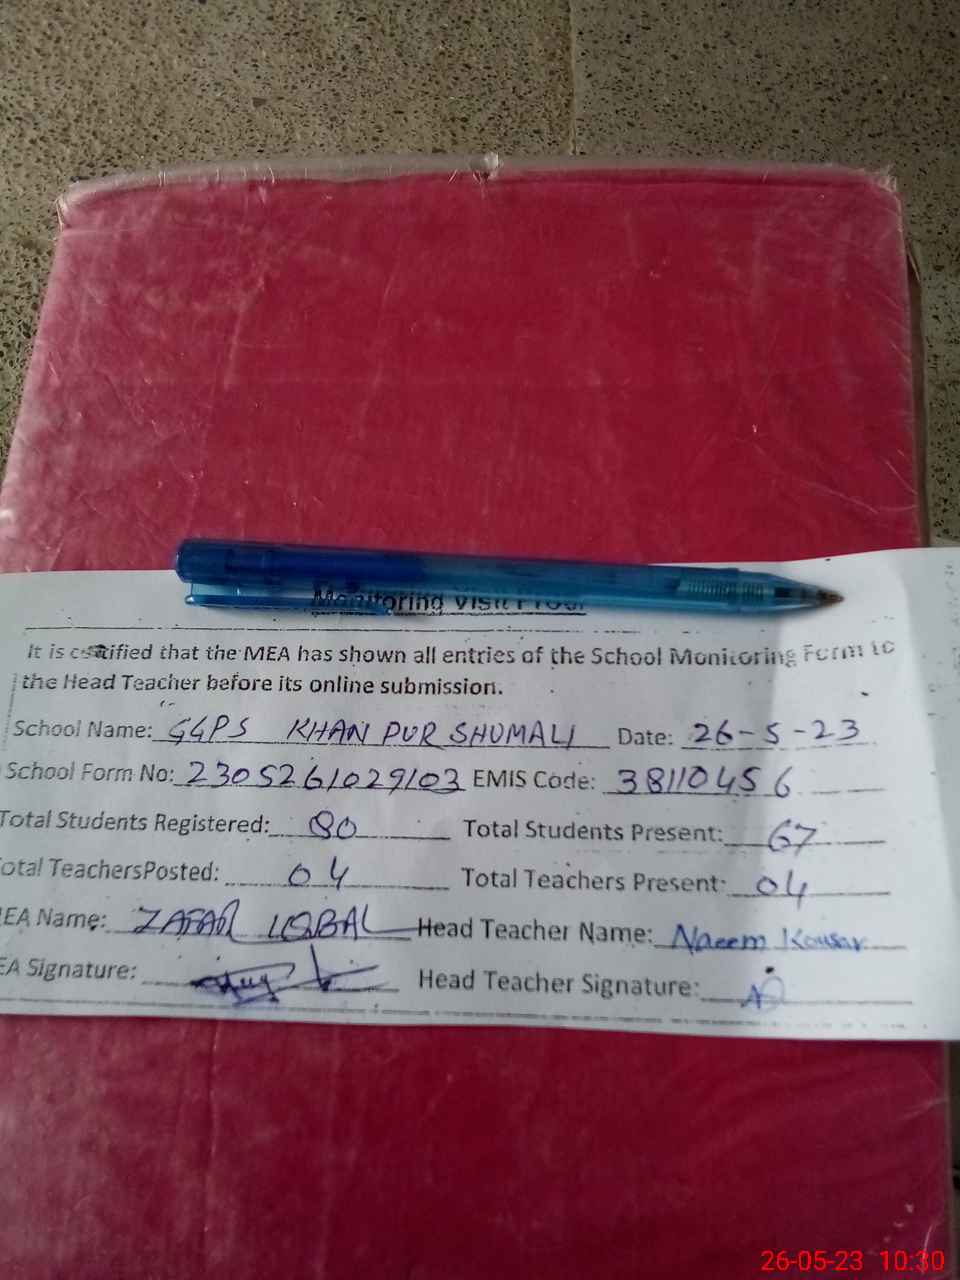 Monitoring Visit Proof
It is certified that the MEA has shown all entries of the School Monitoring Form to
the Head Teacher before its online submission.
School Name: GGPS KHAN PUR SHUMALI Date: 26-5-23
School Form No: 2305261029103 EMIS Code: 38110456
Total Students Registered: 80 Total Students Present: 67
otal TeachersPosted: 04 Total Teachers Present: 04
EA Name: ZAFAR IQBAL Head Teacher Name: Naeem Kousar
EA Signature: Head Teacher Signature:
26-05-23 10:30